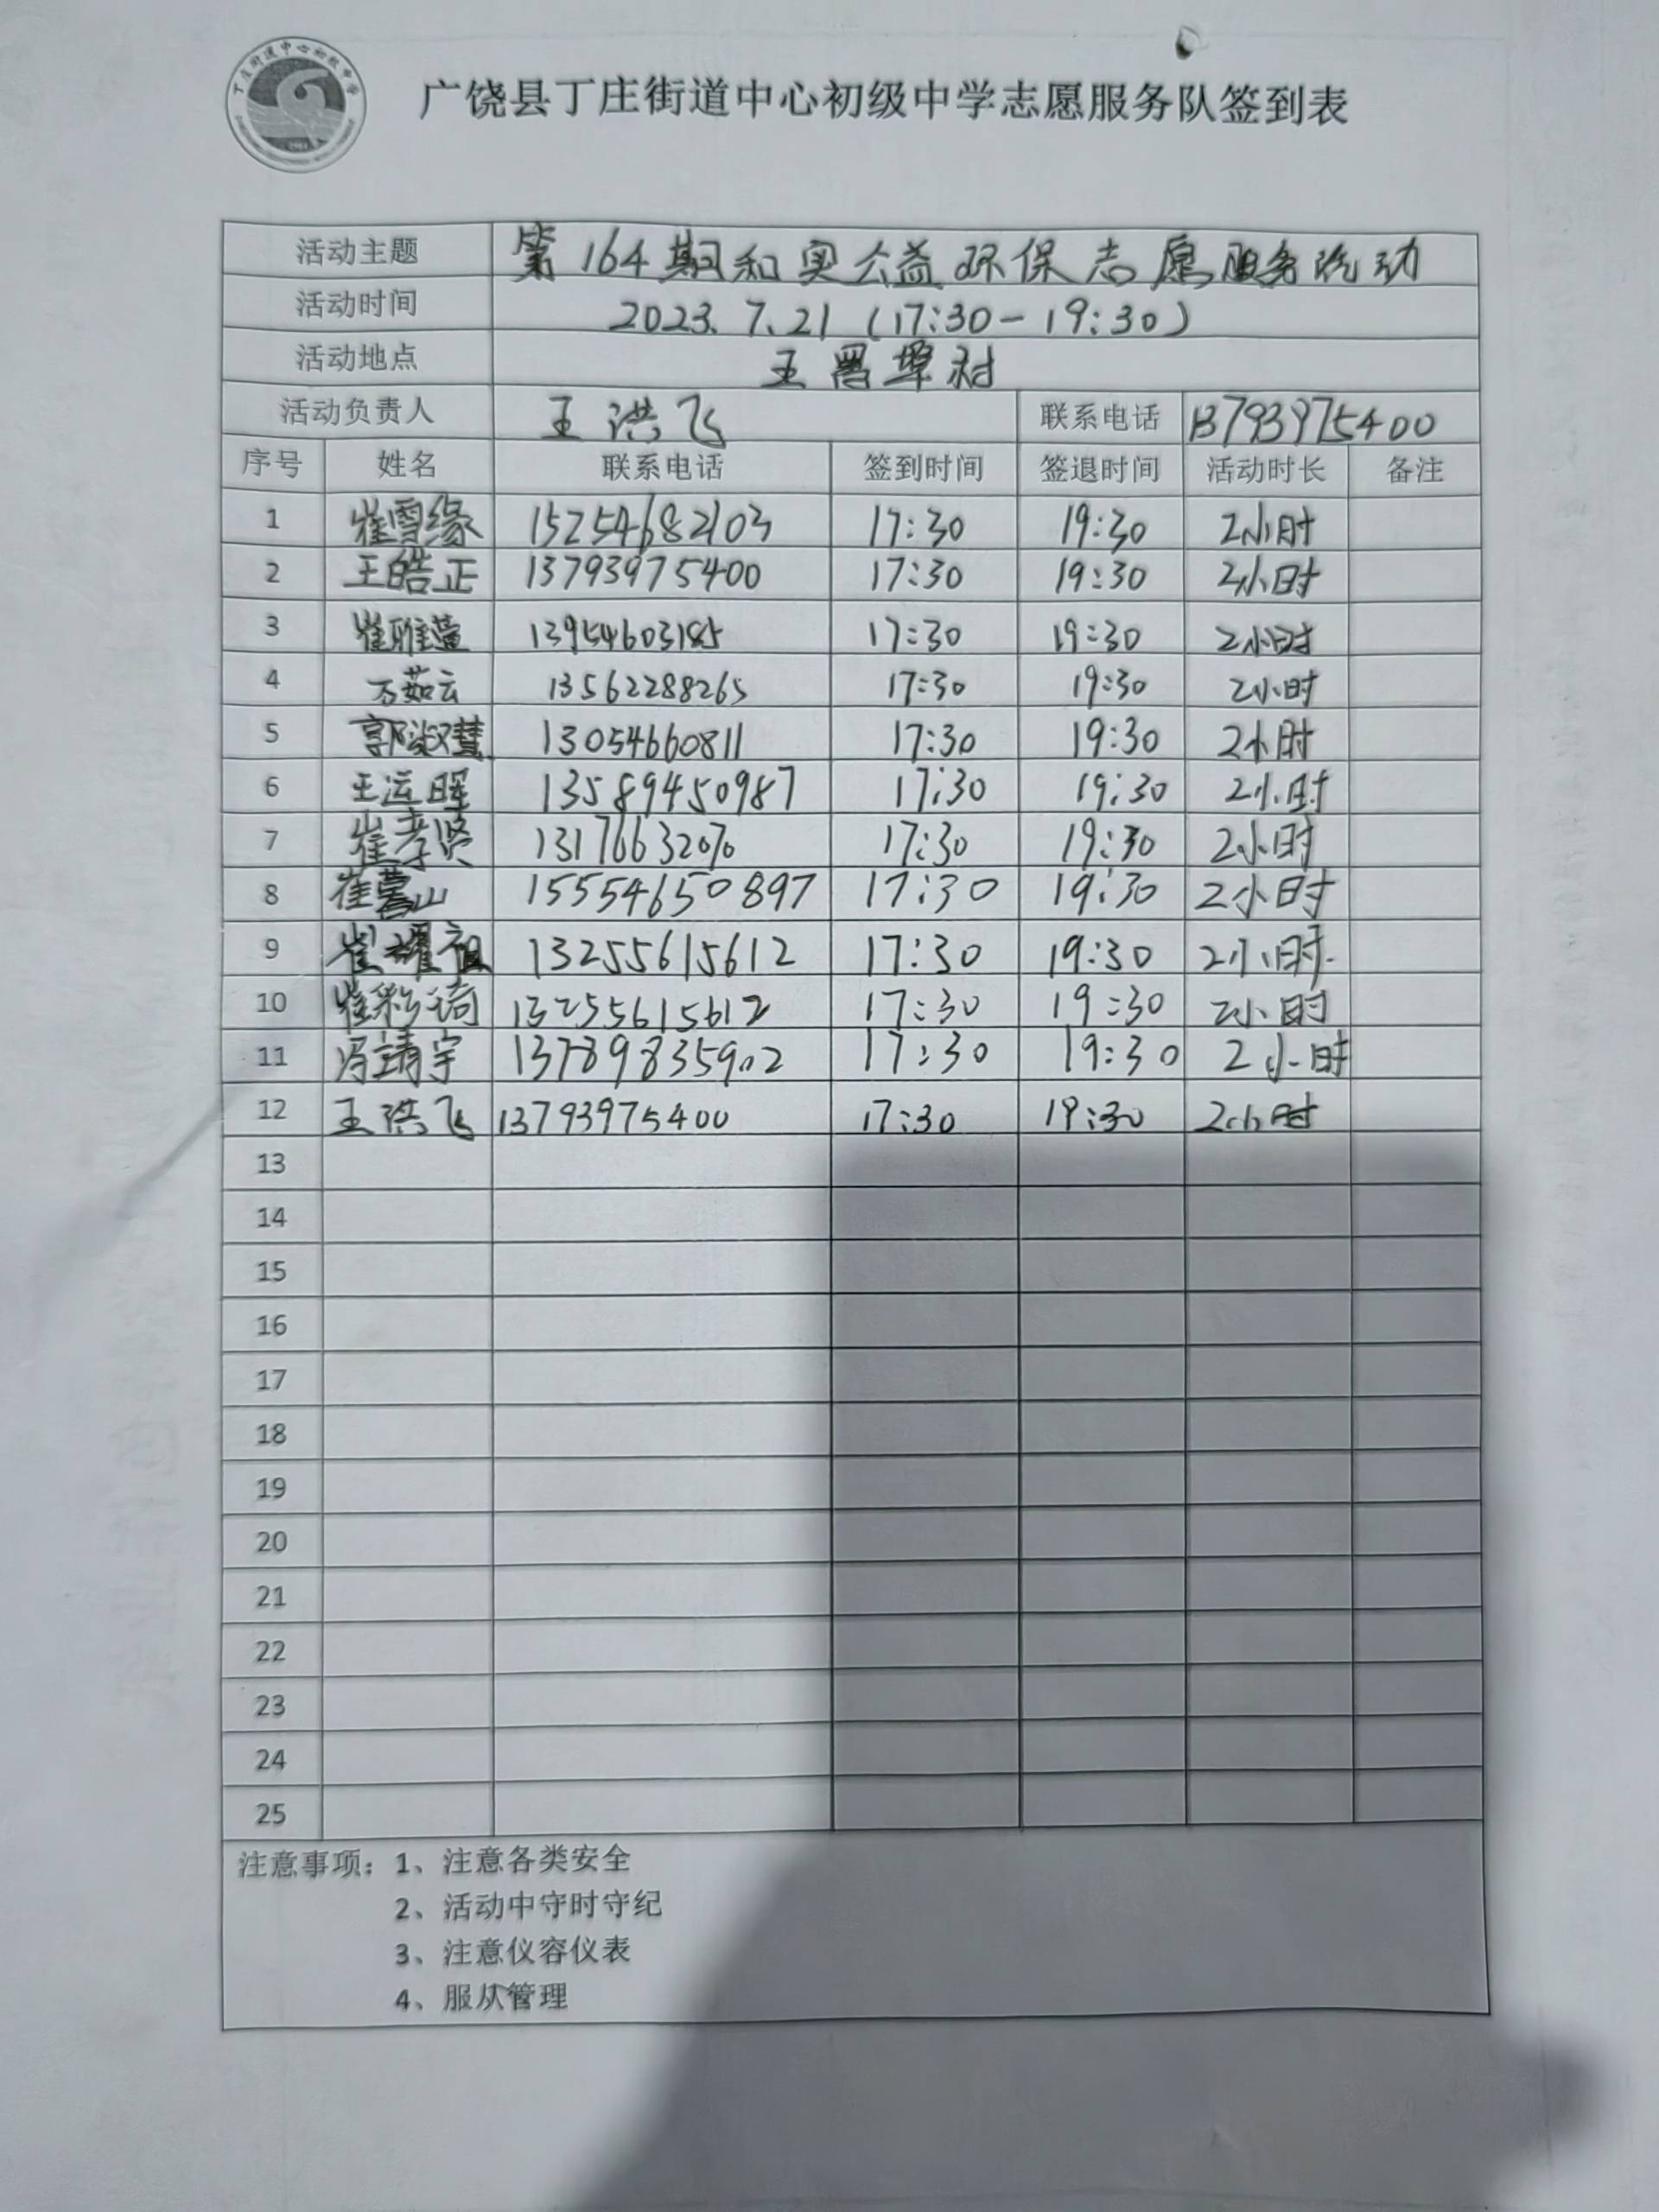 广饶县丁庄街道中心初级中学志愿服务队签到表
活动主题 第164期和实公益环保志愿服务活动
活动时间 2023.7.21(17:30-19:30)
活动地点 王署埠村
活动负责人 王洪飞 联系电话 13793975400
序号 姓名 联系电话 签到时间 签退时间 活动时长 备注
1 崔雪缘 15254682103 17:30 19:30 2小时
2 王皓正 13793975400 17:30 19:30 2小时
3 崔雅萱 13954603185 17:30 19:30 2小时
4 万茹云 13562288265 17:30 19:30 2小时
5 郭淑慧 13054660811 17:30 19:30 2小时
6 王运晖 13589450987 17:30 19:30 2小时
7 崔孝贤 17:30 19:30 2小时
8 15554650897 17:30 19:30 2小时
9 崔耀祖 13255615612 17:30 19:30 2小时
10 13255615612 17:30 19:30 2小时
11 冯靖宇 13789835902 17:30 19:30 2小时
12 王洪飞 13793975400 17:30 19:30 2小时
13
14
15
16
17
18
19
20
21
22
23
24
25
注意事项：1、注意各类安全
2、活动中守时守纪
3、注意仪容仪表
4、服从管理